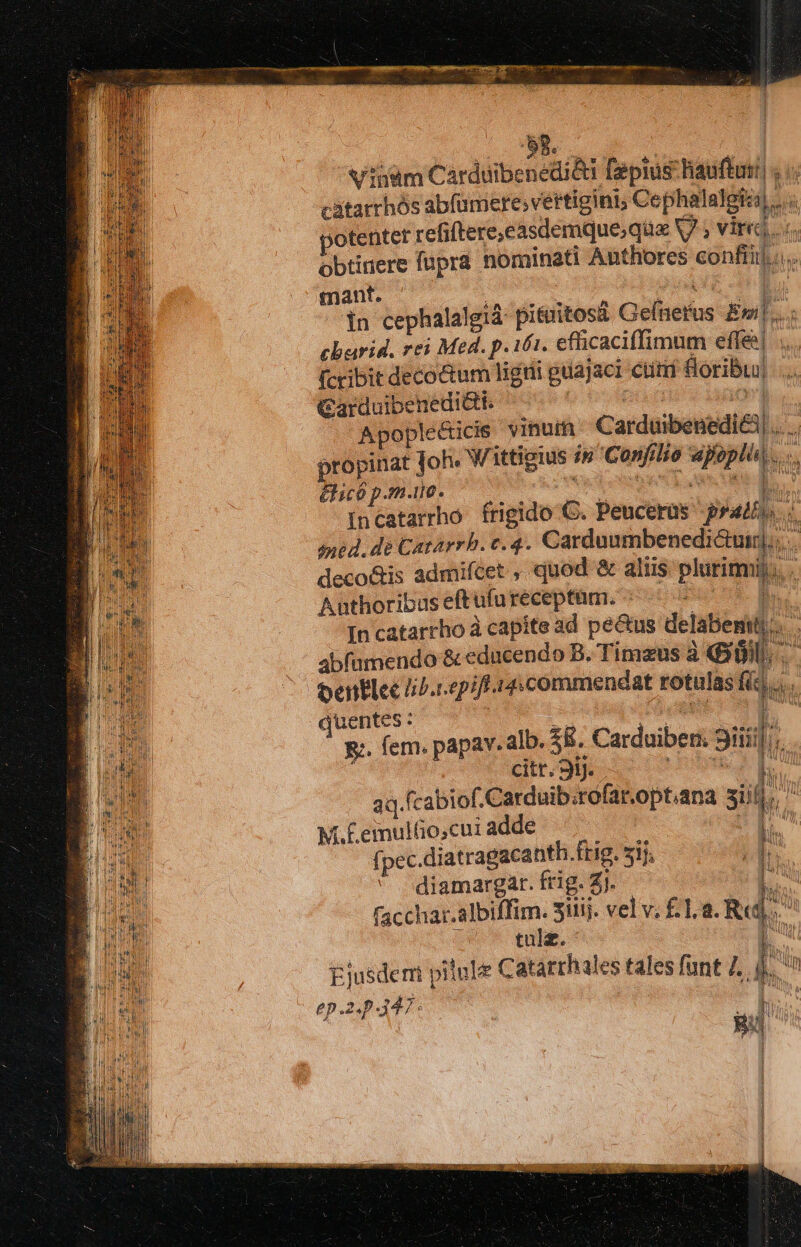 98.
Vinum Carduibenedicti ſæpius hauſtum
catarrhos abſumere, vertigini, Cephalalgiæ
potenter reſiſtere, easdemque, quæ ▽, vires
obtinere ſuprà nominati Authores confir-
mant.
In cephalalgiâ pituitosâ Geſnerus Eu-
charid. rei Med. p. 161. efficaciſſimum eſſe
ſcribit decoctum ligni guajaci cum floribus
Carduibenedicti.
Apoplecticis vinum Carduibenedicti
propinat Joh. Wittigius in Conſilio apople-
cticô p.m. 110.
In catarrho frigido C. Peucerus pract.
med. de Catarrh. c. 4. Carduumbenedictum
decoctis admiſcet, quod & aliis plurimis
Authoribus eſt uſu receptum.
In catarrho à capite ad pectus delabenti
abſumendo & educendo B. Timæus à Gül-
denklee lib. 1. epiſt. 14. commendat rotulas ſe-
quentes:
℞. ſem. papav. alb. ʒß. Carduiben. ℈iiij.
citr. ℈ij.
aq. ſcabioſ. Carduib. roſar. opt. ana ʒiiß.
M. f. emulſio, cui adde
ſpec. diatragacanth. frig. ʒij.
diamargar. frig. ʒj.
ſacchar. albiſſim. ʒiiij. vel v. f. l. a. Ro-
tulæ.
Ejusdem pilulæ Catarrhales tales ſunt l.
ep. 2. p. 347.